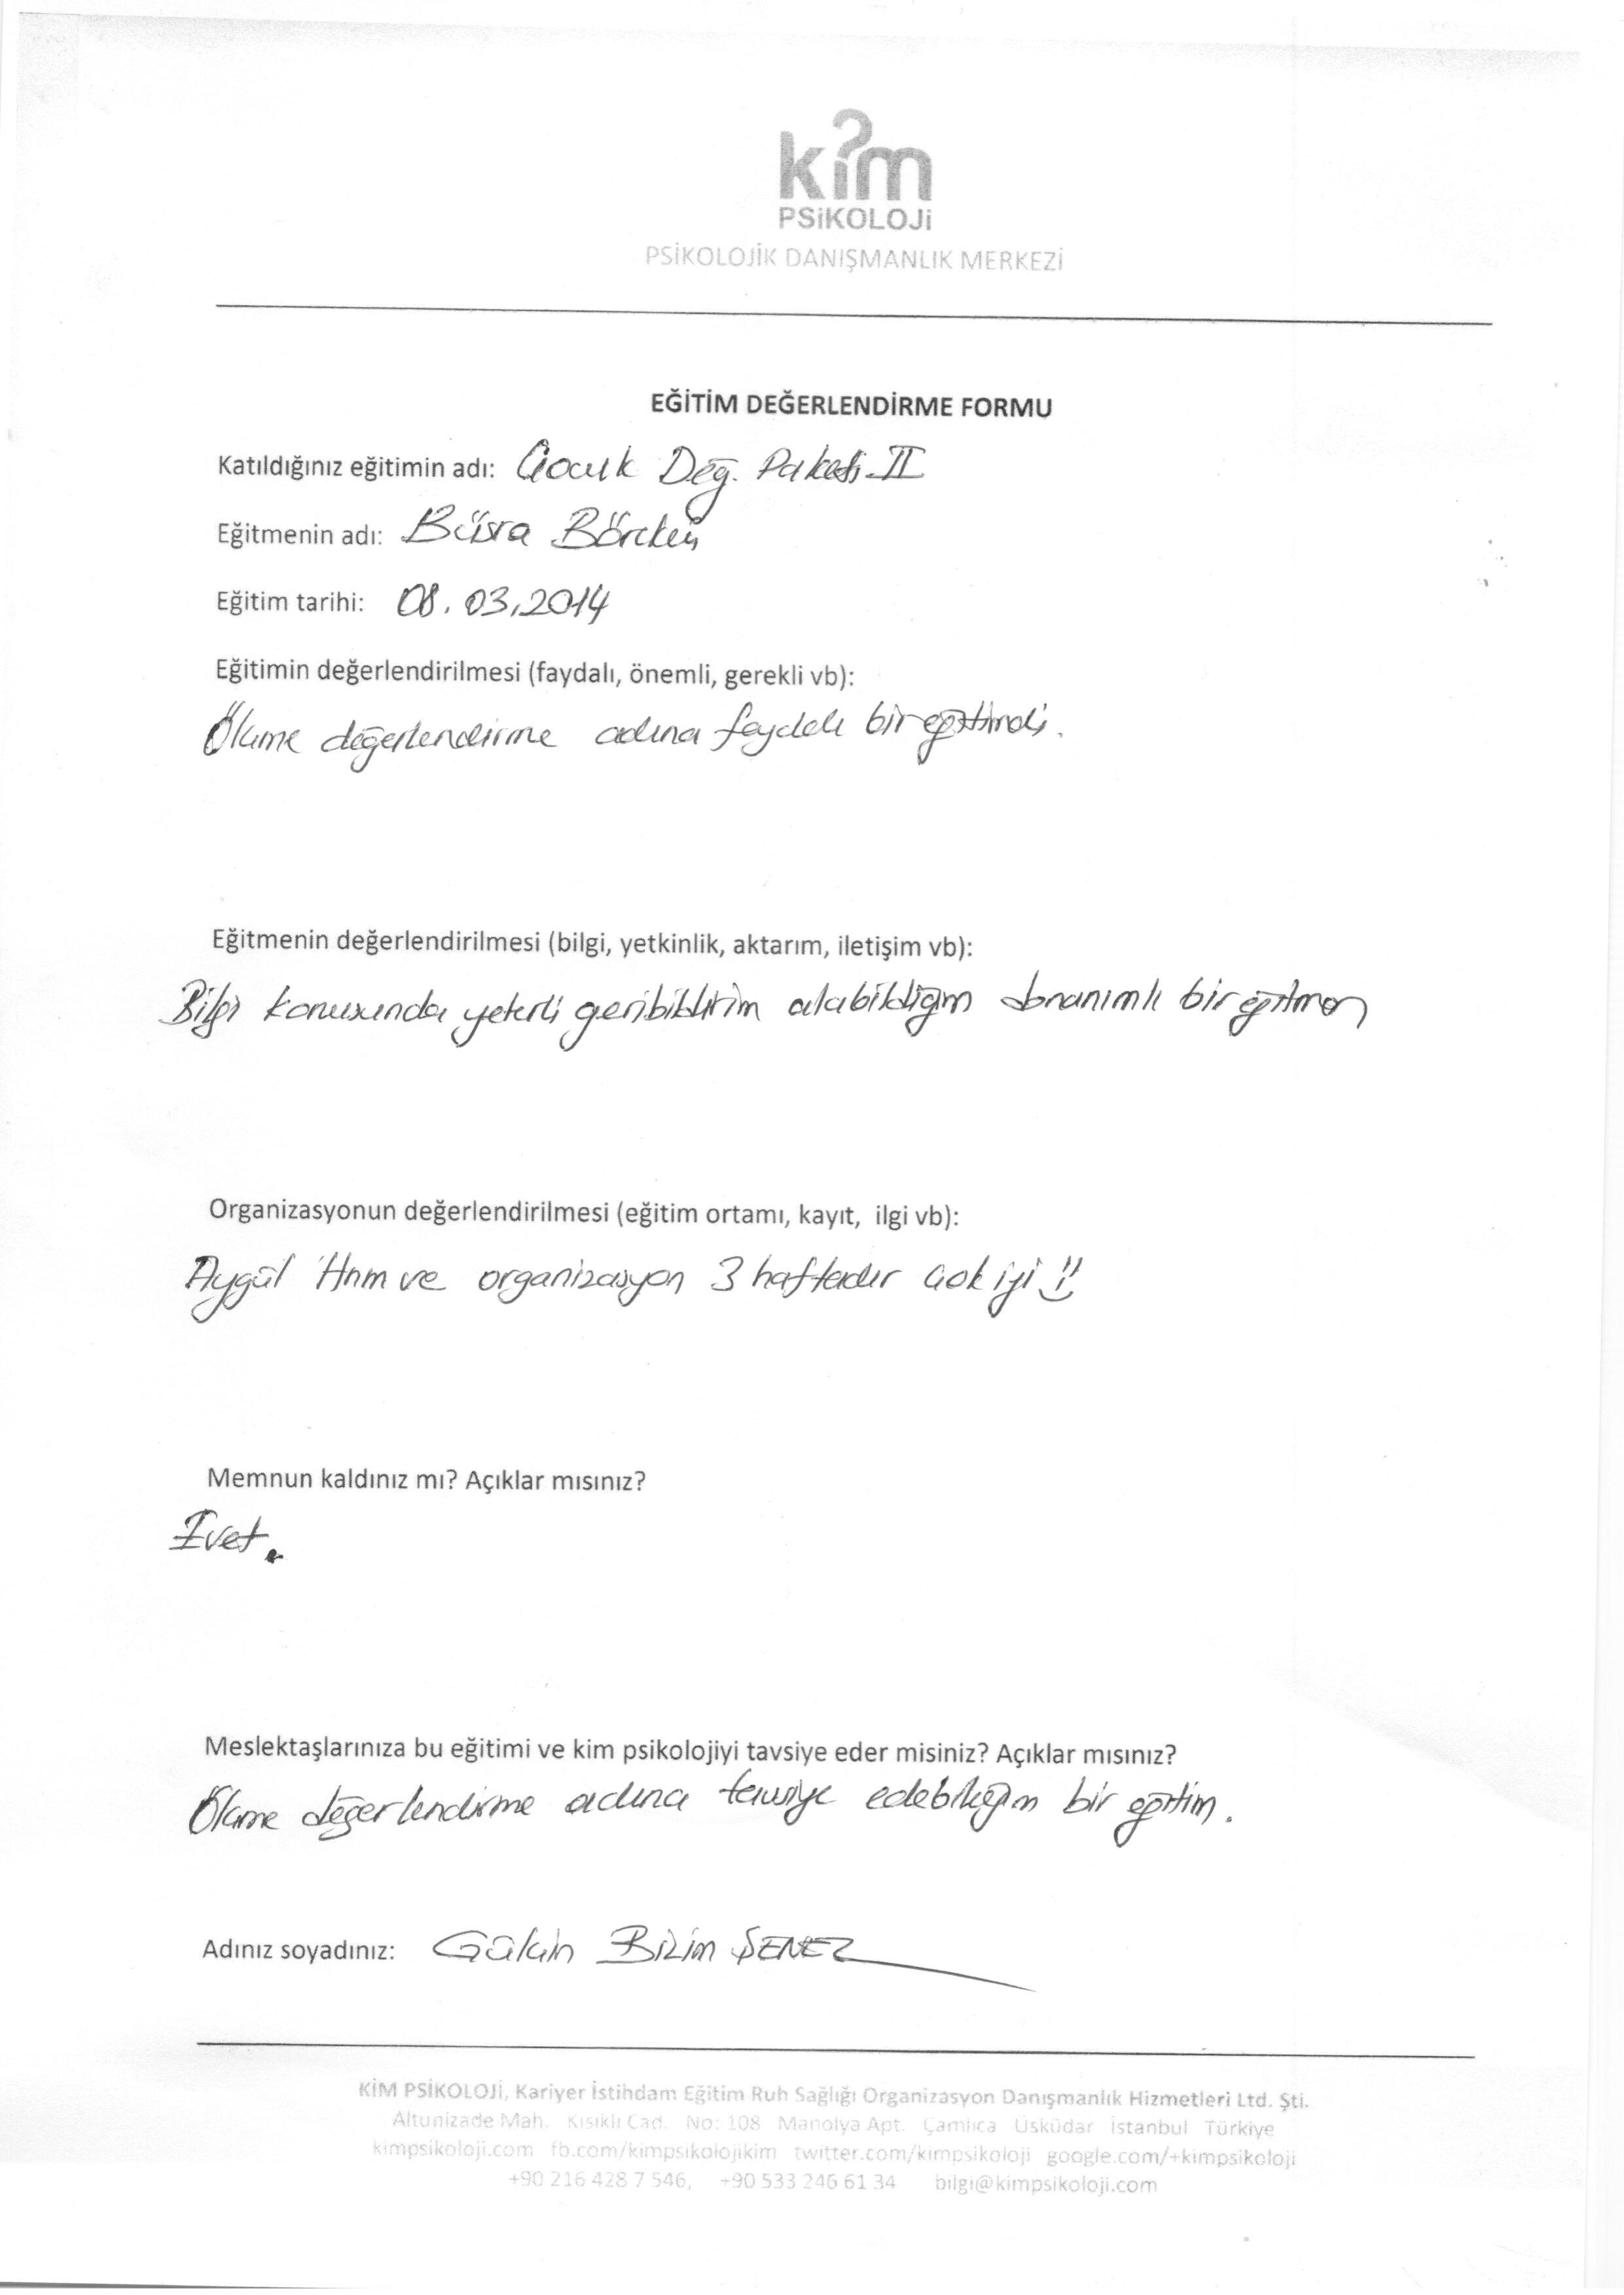 kim
PSiKOLOJi
PSİKOLOJİK DANIŞMANLIK MERKEZİ
EĞİTİM DEĞERLENDİRME FORMU
Katıldığınız eğitimin adı: Çocuk Değ. Paketi II
Eğitmenin adı: Büşra Börekçi
Eğitim tarihi: 08.03.2014
Eğitimin değerlendirilmesi (faydalı, önemli, gerekli vb):
Ölçme değerlendirme adına faydalı bir eğitimdi.
Eğitmenin değerlendirilmesi (bilgi, yetkinlik, aktarım, iletişim vb):
Bilgi konusunda yeterli geribildirim alabildiğim donanımlı bir eğitmen
Organizasyonun değerlendirilmesi (eğitim ortamı, kayıt, ilgi vb):
Aygül Hnm ve organizasyon 3 haftadır çok iyi
Memnun kaldınız mı? Açıklar mısınız?
Evet.
Meslektaşlarınıza bu eğitimi ve kim psikolojiyi tavsiye eder misiniz? Açıklar mısınız?
Ölçme değerlendirme adına tavsiye edebileceğim bir eğitim.
Adınız soyadınız: Gülçin Bizim ŞENEL
KİM PSİKOLOJİ, Kariyer İstihdam Eğitim Ruh Sağlığı Organizasyon Danışmanlık Hizmetleri Ltd. Şti.
Altunizade Mah. Kısıklı Cad. No: 108 Manolya Apt. Çamlıca Üsküdar İstanbul Türkiye
kimpsikoloji.com fb.com/kimpsikolojikim twitter.com/kimpsikoloji google.com/+kimpsikoloji
+90 216 428 7 546, +90 533 246 61 34 bilgi@kimpsikoloji.com